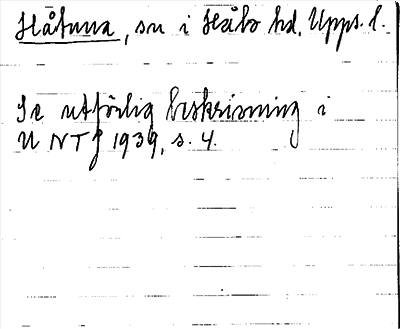 Håtuna, sn i Håbo hd, Upps. l.
Se utförlig beskrivning i
UNTJ 1939, s. 4.